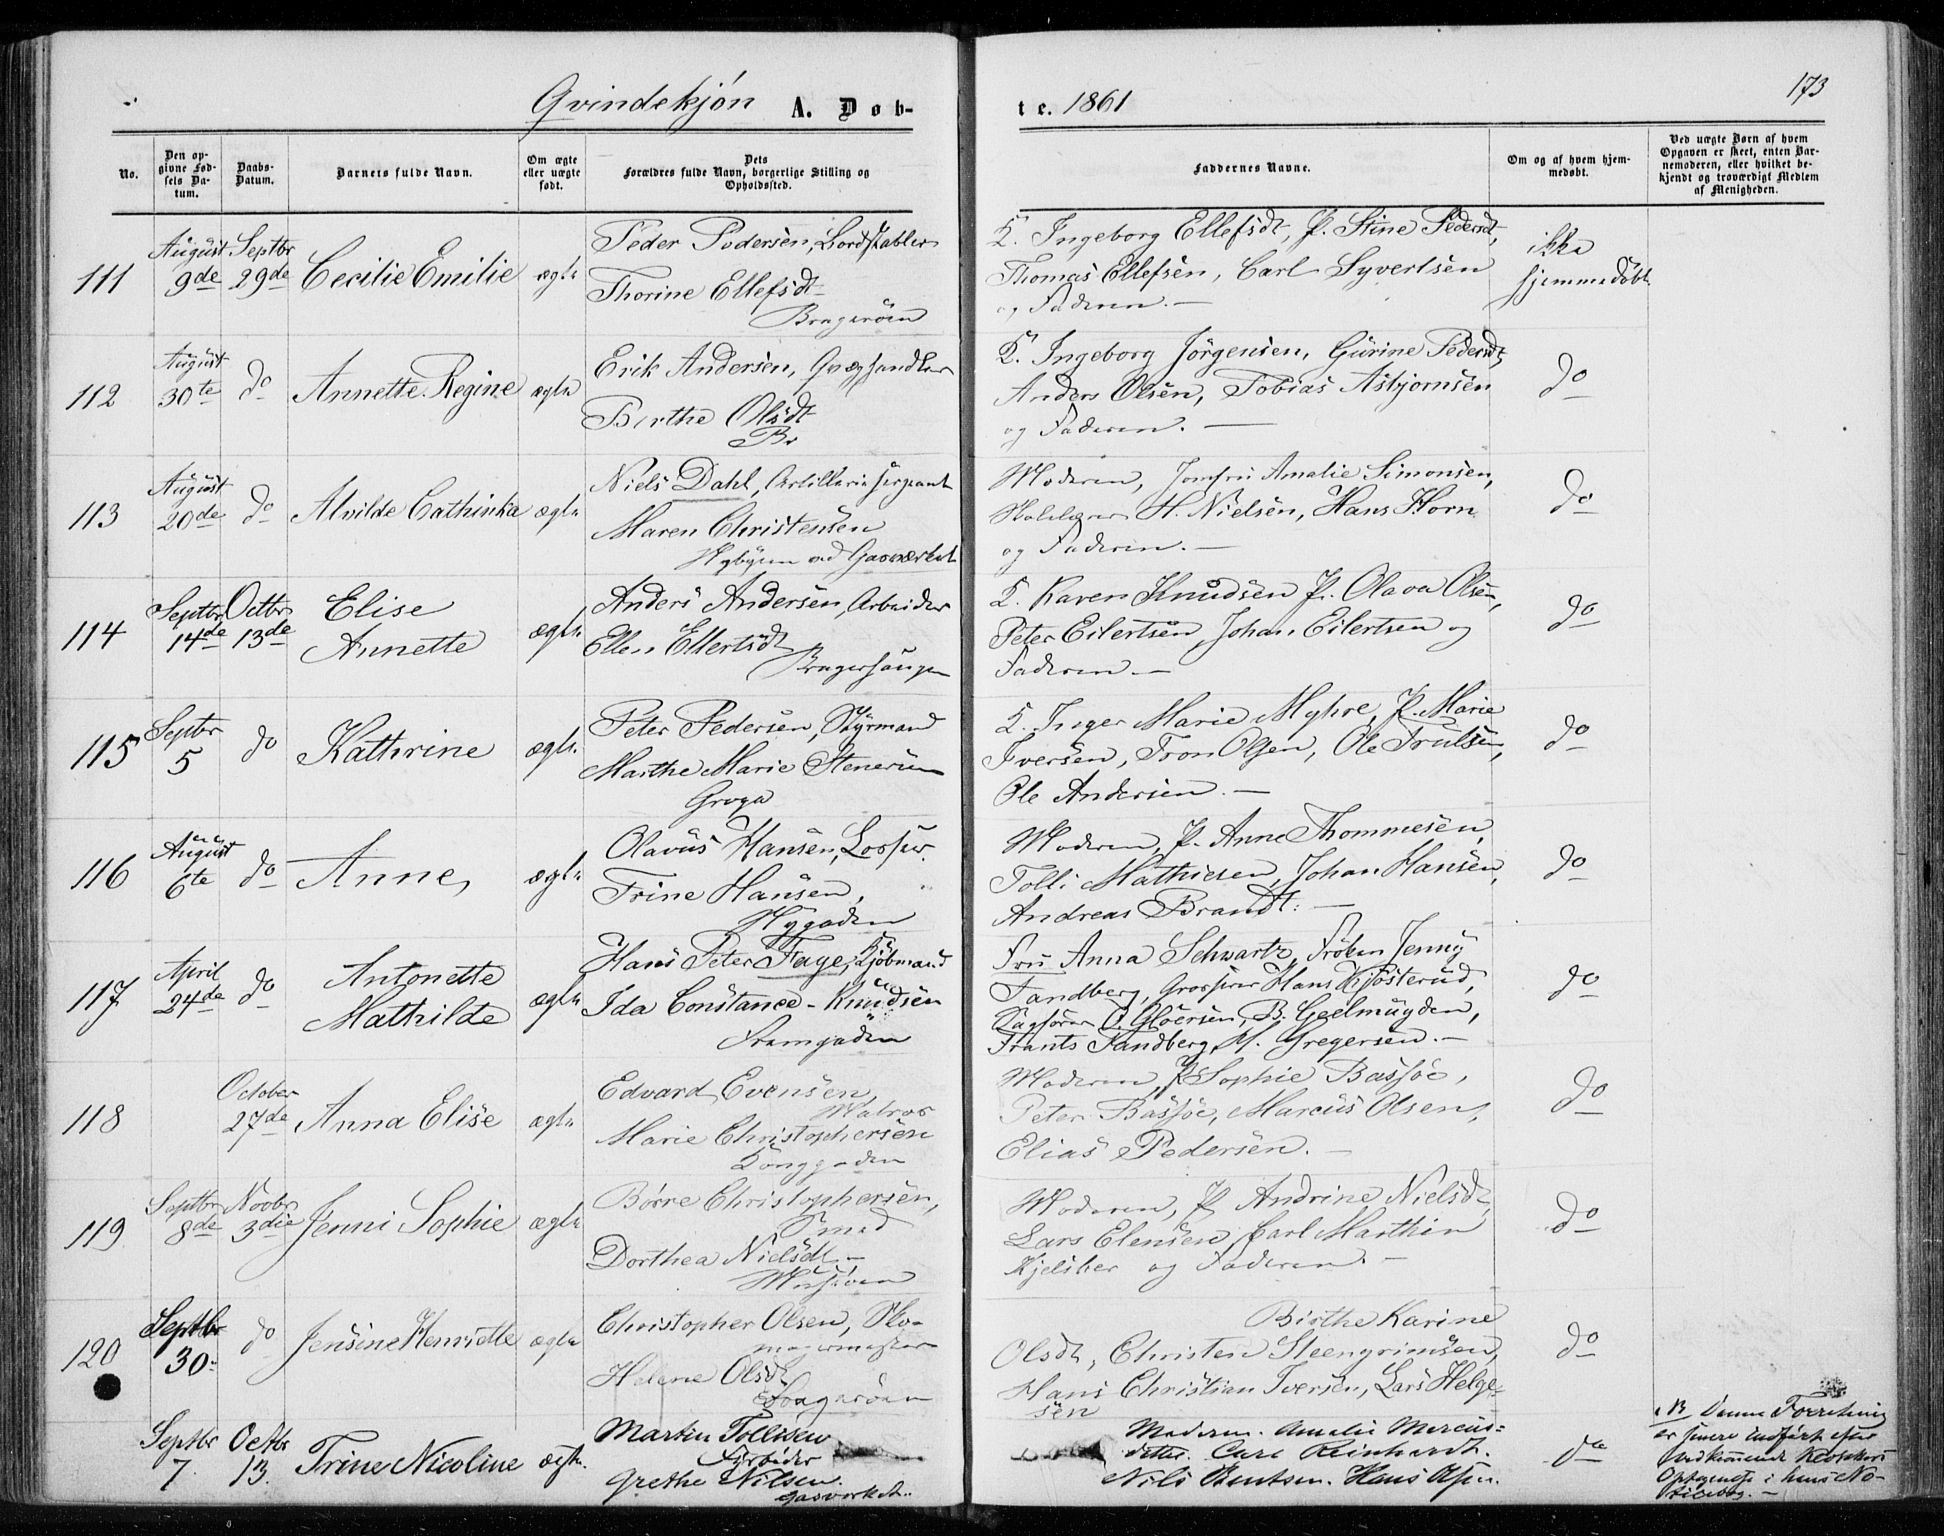 Qvindekjøn A. Døb-
te. 1861
173
No.
Den op-
givne Fød-
sels Da-
tum.
Daabs-
Datum.
Barnets fulde Navn.
Om ægte
eller uægte
født.
Dets
Forældres fulde Navn, borgerlige Stilling og
Opholdssted.
Faddernes Navne.
Om og af hvem hjem-
medøbt.
Ved uægte Børn af hvem
Opgaven er skeet, enten Bar-
nemoderen, eller hvilket be-
kjendt og troværdigt Medlem
af Menigheden.
111
August
9de
Septbr
29de
Cecilie Emilie
ægte
Peder Pedersen, Bordstabler
Thorine Ellefsdt
Bragerøen
K. Ingeborg Ellefsdt, P. Stine Pedersdt,
Thomas Ellefsen, Carl Syvertsen
og Faderen. —
ikke
hjemmedøbt
112
August
30te
do
Annette Regine
ægte
Erik Andersen,
Birthe Olsdt
Br
K. Ingeborg Jörgensen, Gurine Pedersdt,
Anders Olsen, Tobias Asbjornsen
og Faderen. —
do
113
August
20de
do
Alvilde Cathinka
ægte
Niels Dahl, Artillerie sergeant
Maren Christensen
Nybyen ved Gasværket
Moderen, Jomfru Amalie Simonsen,
Skolelærer H. Nielsen, Hans Horn
og Faderen. —
do
114
Septbr
14de
Octbr
13de
Elise
Annette
ægte
Anders Andersen, Arbeider
Ellen Ellertsdt
Bragerhaugen
K. Karen Knudsen P. Olava Olsen,
Peter Eilertsen, Johan Eilertsen og
Faderen —
do
115
Septbr
5
do
Kathrine
ægte
Peter Pedersen, Styrmand
Marthe Marie Stenersen
K. Inger Marie Myhre, P. Marie
Iversen, Tron Olsen, Ole Trulsen,
Ole Andersen. —
do
116
August
6te
do
Anne,
ægte
Olavus Hansen, Losser
Trine Hansen,
Nygaden
Moderen, P. Anne Thommesen,
Tolli Mathiesen, Johan Hansen,
Andreas Brandt. —
do
117
April
24de
do
Antonette
Mathilde
ægte
Hans Peter Faye, Kjöbmand
Ida Constance Knudsen
Strømgaden
Fru Anna Schwartz, Frøken Jenny
Tandberg, Grosserer Hans Kjösterud,
Sagfører O. Gløersen, B. Geelmuyden,
Frants Tandberg, M. Gregersen. —
do
118
October
27de
Anna Elise
ægte
Edvard Evensen,
Matros
Marie Christophersen
Konggaden
Moderen, P Sophie Bassøe,
Peter Bassøe, Marcus Olsen,
Elias Pedersen. —
do
119
Septbr
8de
Novbr
3die
Jenni Sophie
ægte
Börre Christophersen,
Smed
Dorthea Nielsdt. —
Moderen, P Andrine Nielsdt,
Lars Elensen, Carl Marthin
Kjelsber og Faderen. —
do
120
Septbr
30
do
Jensine Henriette
ægte
Christopher Olsen, Sko-
magermester
Helene Olsdt
Bragerøen
Birthe Karine
Olsdt, Christen Steengrimsen,
Hans Christian Iversen, Lars Helge-
sen
do
Septbr
7
Octbr
13
Trine Nicoline
ægte
Martin Tollisen
Arbeider
Grethe Nilsen
Gasverket
Moderen. Amalie Marcus-
datter. Carl Reinhardt.
Nils Bentsen. Hans
do
NB Denne Forretning
er senere indført efter
vedkommende Klokkers
Optegnelse i hans No-
titsbog. —